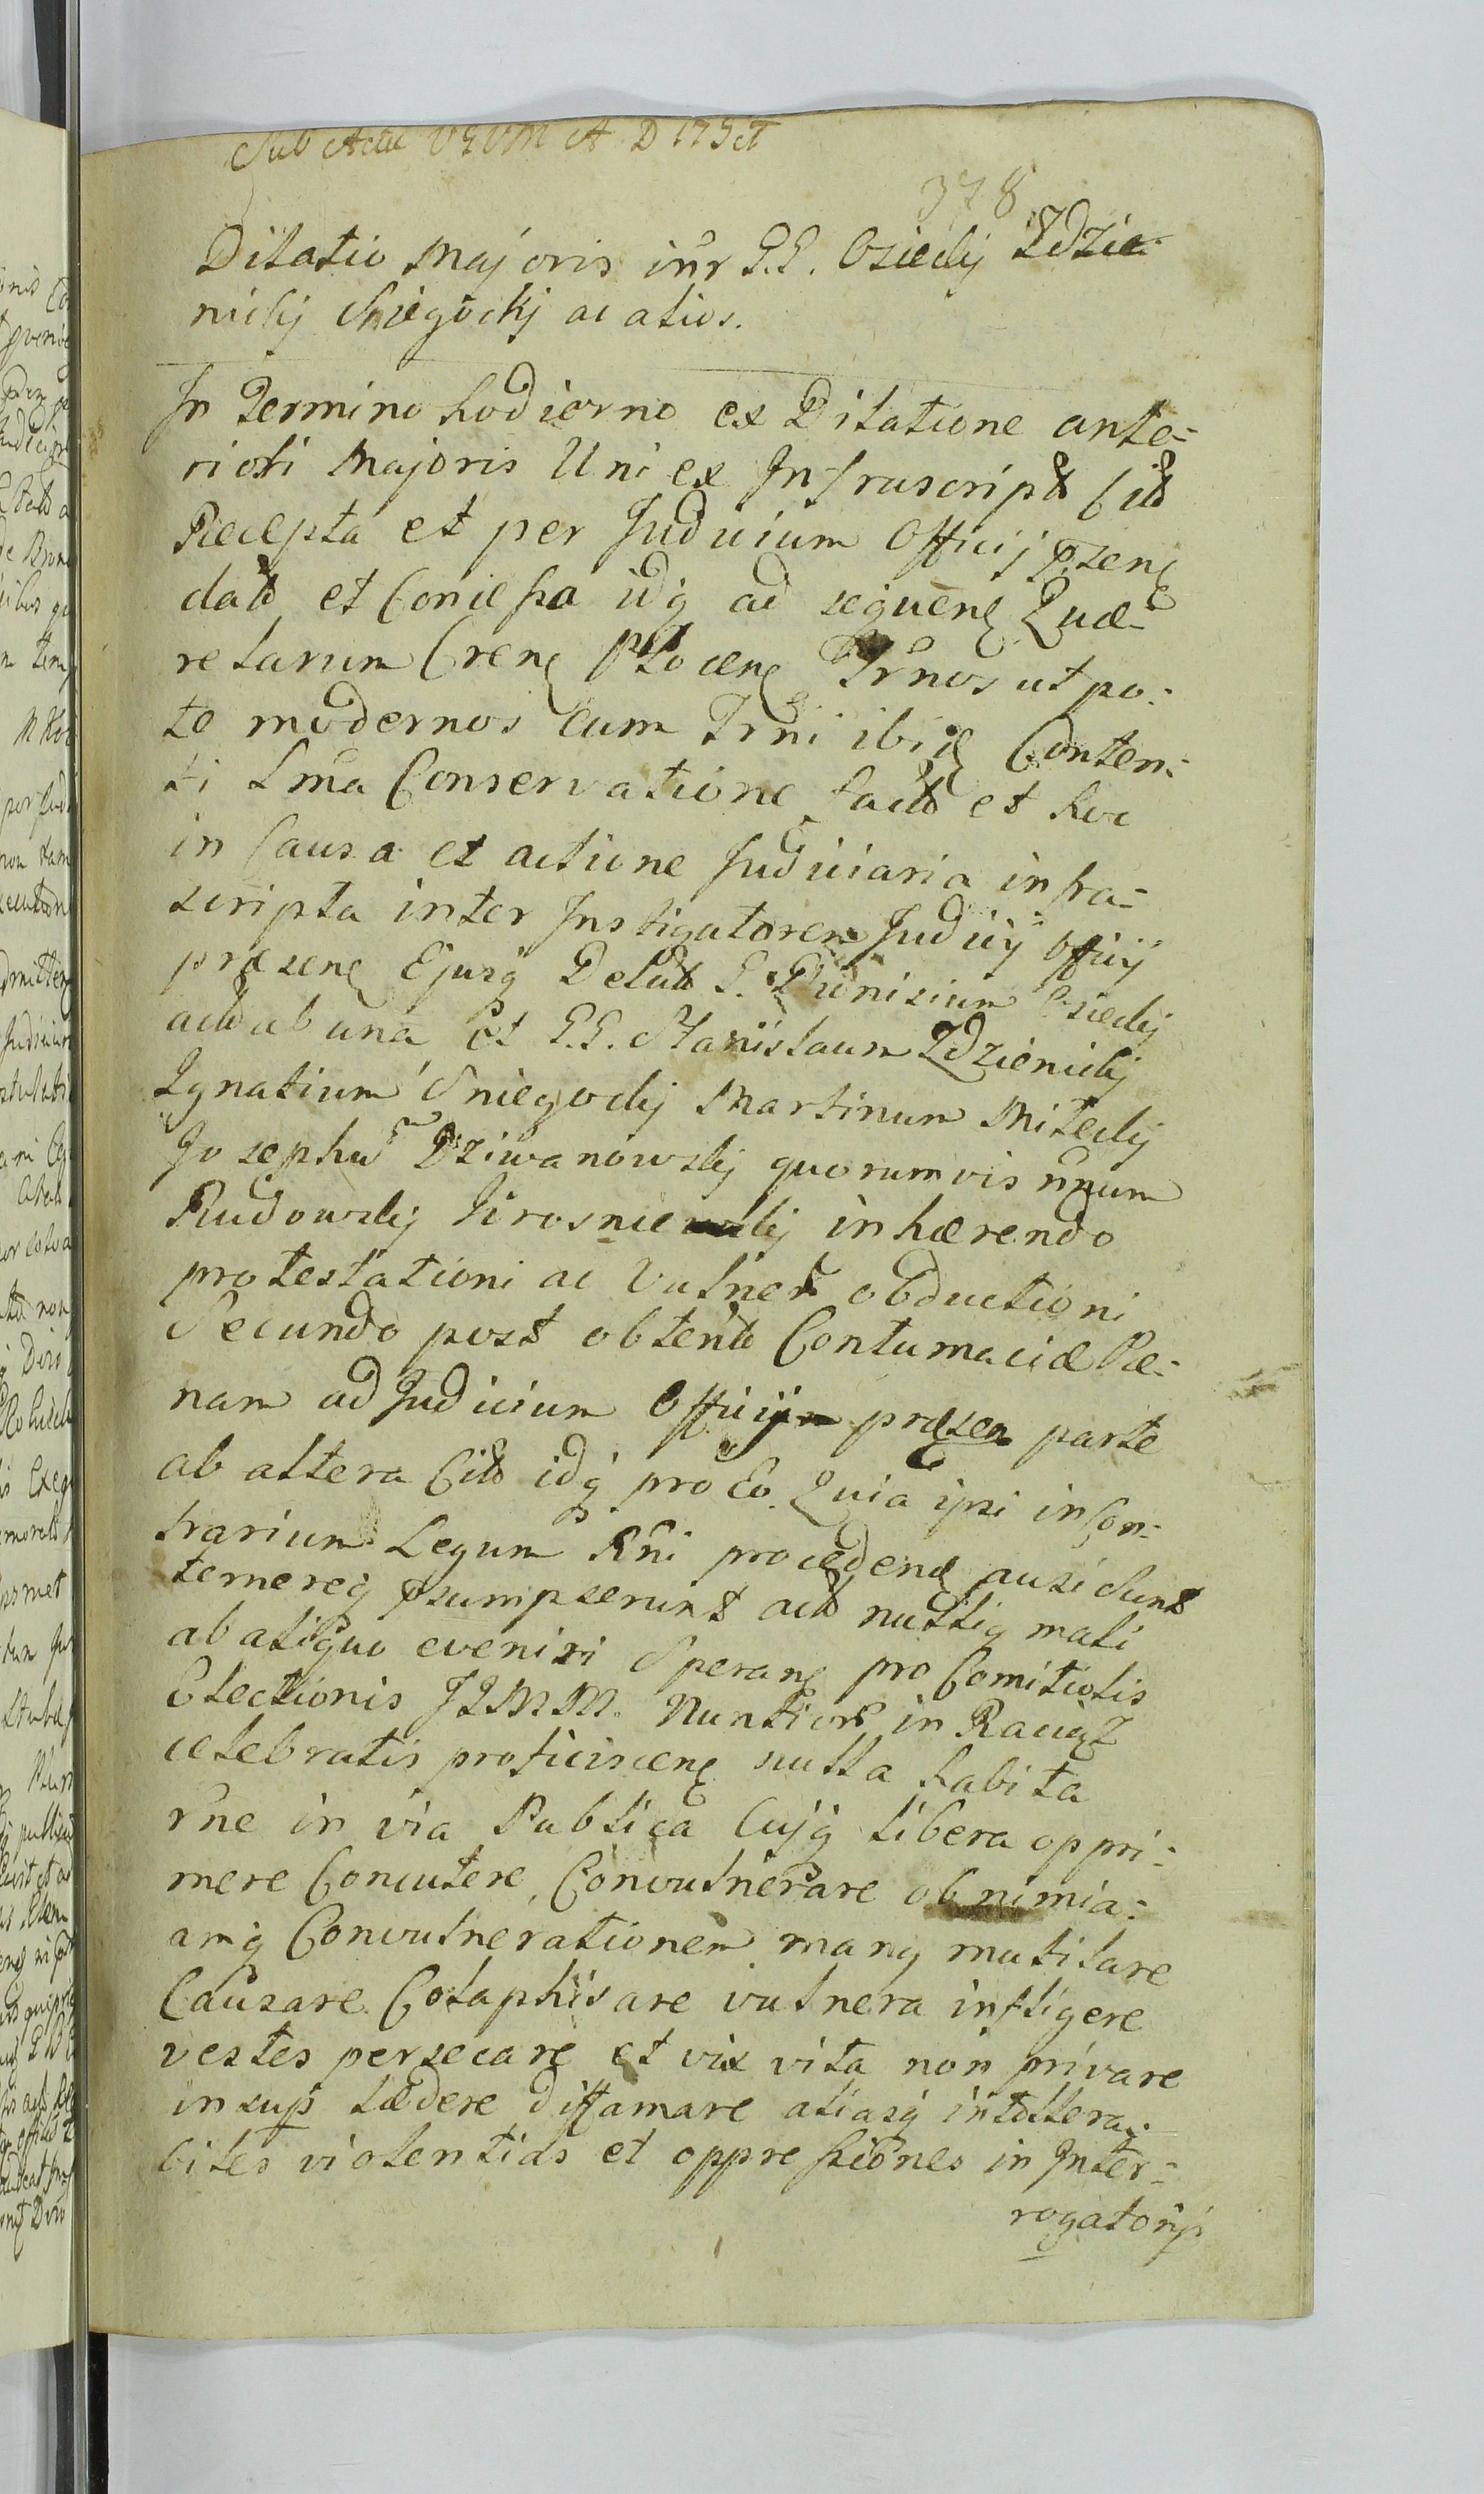 Sub Actu
378
Dilatio Majoris inr̃ G.G. Osiecky Zdzie-
nicky Sniegocky ac alios.
In Termino hodierno ex Dilatione ante=
riori Majoris Uni ex Infrascript Cit
Recepta et per Judicium Officij p̃sen
dato et Concessa idq ad sequen̄ Quæ-
relarum Cren Plocen Tr̃nos ut po:
te modernos cum Tr̃ni ibid Conten:
ti Lm̃a Conservatione facto et hoc
in Causa et actione Judiciaria infra=
scripta inter Instigatorem Judicij Officij
præsen Ejusq Delato G. Dionisium Osiecky
acto ab una et G.G. Stanislaum Zdzienicky
Ignatium Sniegocky Martinum Milecky
Josephũ Dziwanowsky quorumvis unum
Rudowsky Krosniewsky inhærendo
protestationi ac Vulner obductioni
Secundo post obtento Contumaciæ Pæ=
nam ad Judicium Officij præsen parte
ab altera Cito idq pro Eo. Quia ipsi in Con=
trarium Legum Rñi proceden ausi sunt
temereq p̃sumpserunt acto nulliq mali
ab aliquo eveniri Speran pro Comitiolis
Electionis JJMM. Nuntior in Raciąz
celebratis proficiscen nulla habita
rñe in via Publica Cujq libera oppri=
mere Concutere, Convulnerare ob nimia=
amq Convulnerationem manq mutilare
Causare Colaphisare vulnera infligere
vestes persecare et vix vita non privare
insup lædere diffamare aliasq intollera=
biles violentias et oppressiones in Inter=
rogatorij